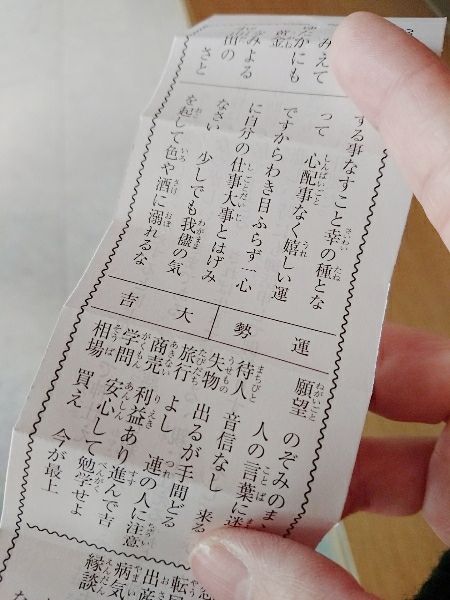 みえて
かにも
みよる
出の
さと
する事なすこと幸の種とな
って 心配事なく嬉しい運
ですからわき目ふらず一心
に自分の仕事大事とはげみ
なさい 少しでも我儘の気
を起して色や酒に溺れるな
運勢 大吉
願望 のぞみのま
人の言葉に迷
待人 音信なし 来る
失物 出るが手間どる
旅行 よし 連の人に注意
商売 利益あり 進んで吉
学問 安心して勉学せよ
相場 買え 今が最上
出産
病気
縁談 な